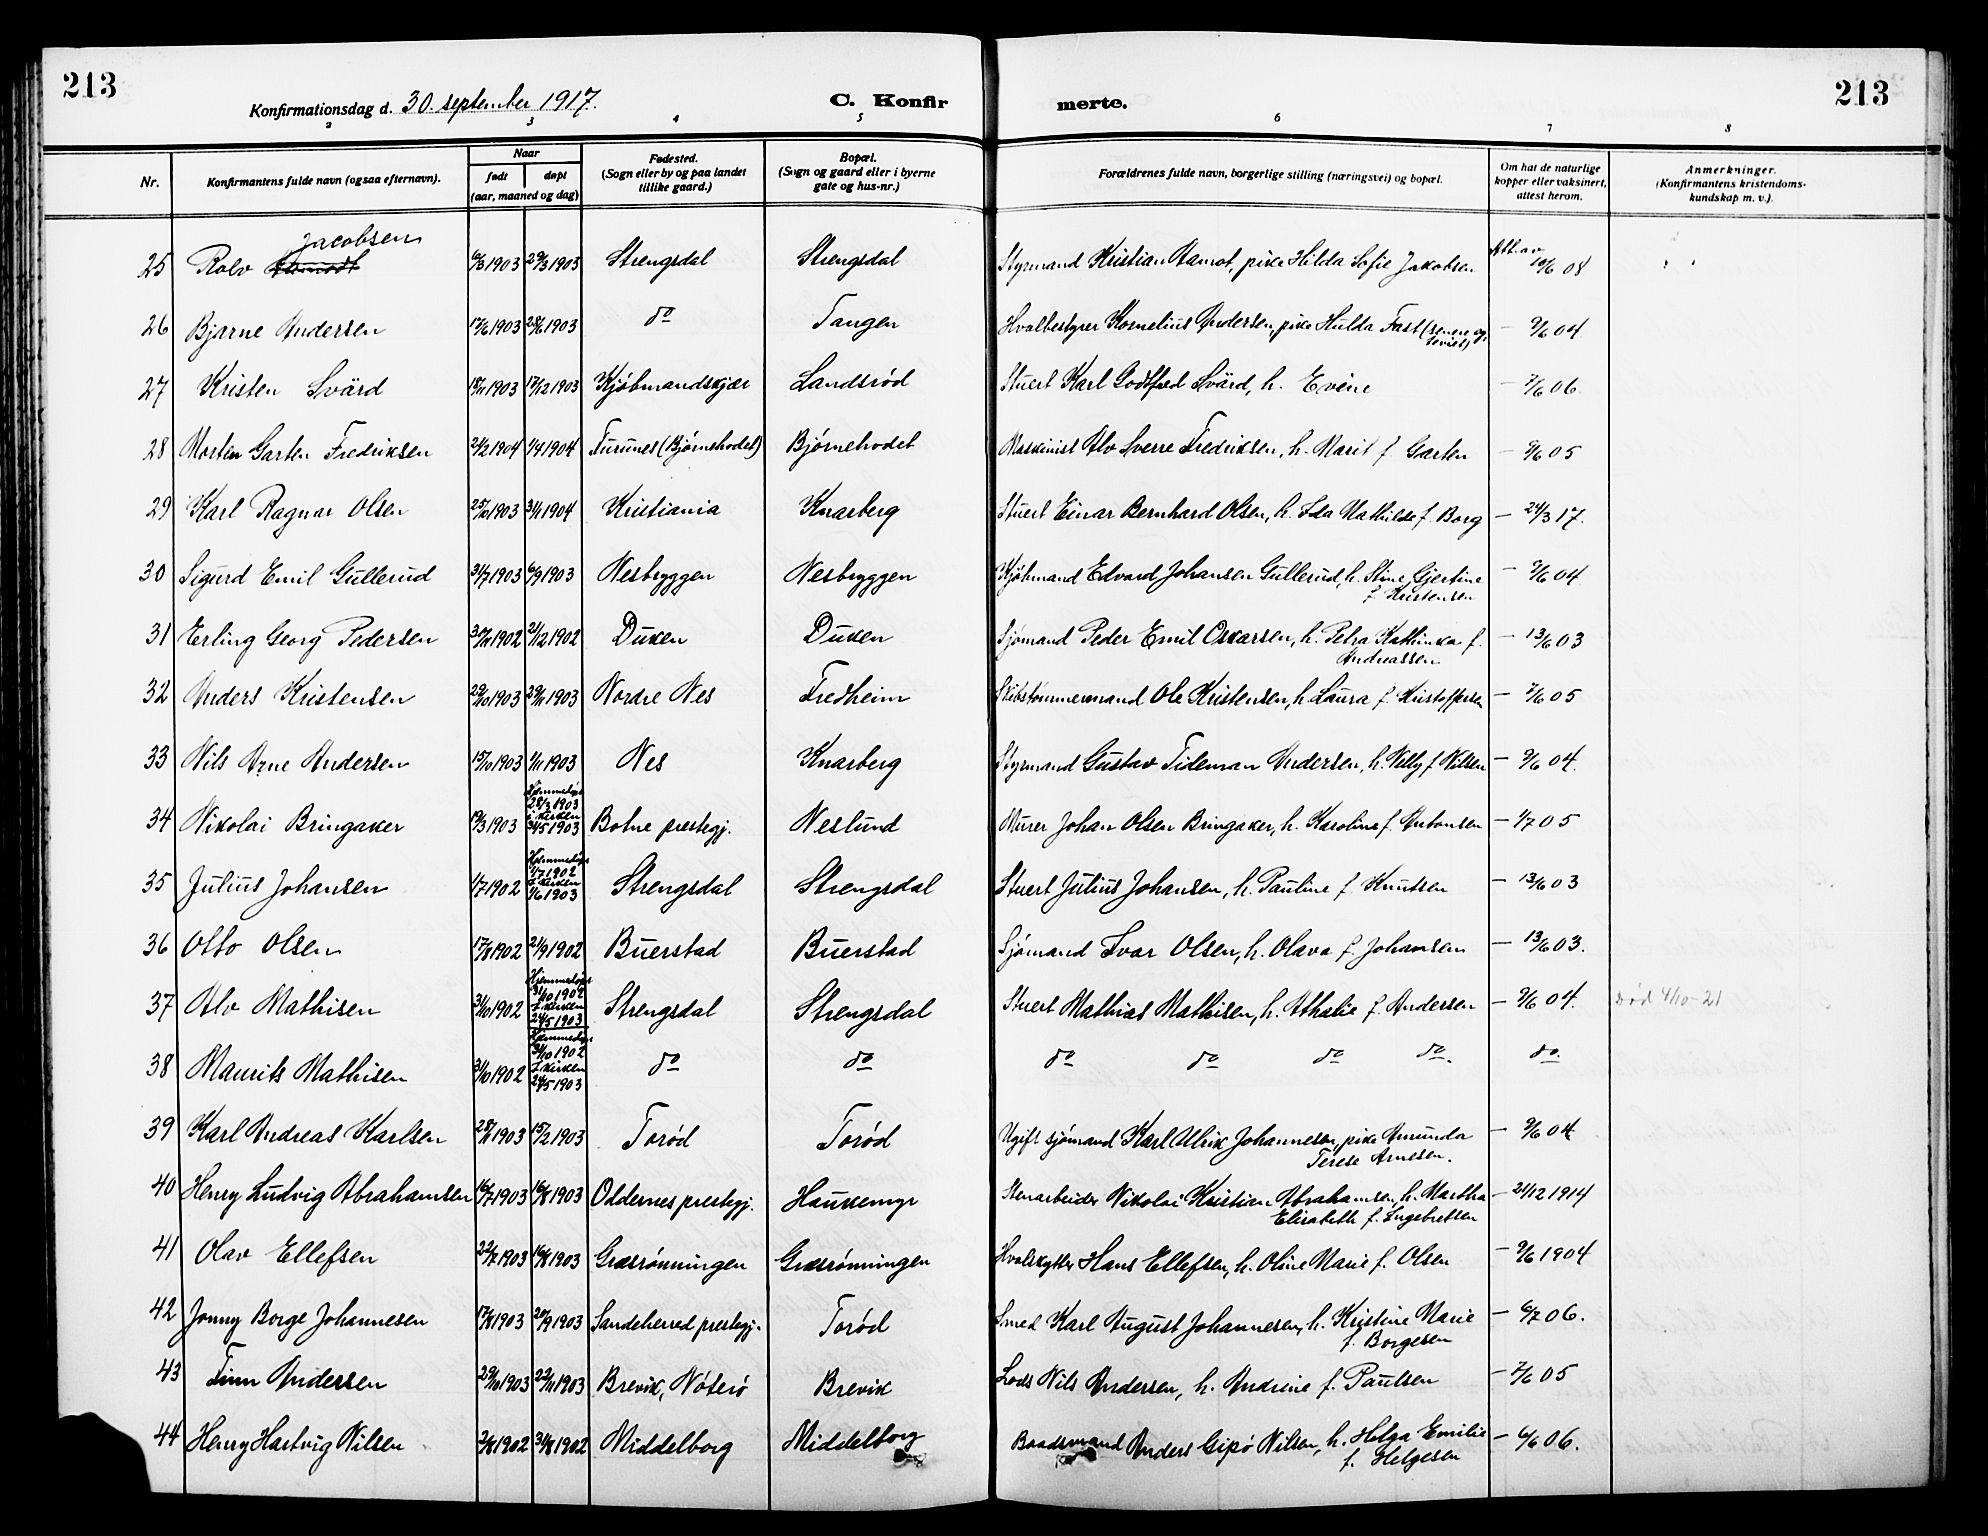 213
Konfirmationsdag d. 30. september 1917.
C. Konfirmerte.
213
2 3 4 5 6 7 8
Nr.
Konfirmantens fulde navn (ogsaa efternavn).
Naar
født døpt
(aar, maaned og dag)
Fødested.
(Sogn eller by og paa landet
tillike gaard.)
Bopæl.
(Sogn og gaard eller i byerne
gate og hus-nr.)
Forældrenes fulde navn, borgerlige stilling (næringsvei) og bopæl.
Om hat de naturlige
kopper eller vaksinert,
attest herom.
Anmerkninger.
(Konfirmantens kristendoms-
kundskap m. v.).
Jacobsen
25 Rolv 6/3 1903 29/3 1903 Strengsdal Strengsdal Styrmand Kristian Aamot, pike Hilda Sofie Jakobsen Att. av 10/6 08
26 Bjarne Andersen 17/6 1903 28/6 1903 do Tangen Hvalbestyrer Kornelius Andersen, pike Hulda Fast (senere eg.
levist)
— 9/6 04
27 Kristen Svärd 18/11 1903 17/12 1903 Kjøbmandskjær Landsrød Stuert Karl Godtfred Svärd, h. Evéne — 7/6 06
28 Martin Garten Fredriksen 24/2 1904 1/4 1904 Furunes (Bjørnehodet) Bjørnehodet Maskinist Alv Sverre Fredriksen, h. Marit f. Garten — 9/6 05
29 Karl Ragnar Olsen 25/10 1903 3/1 1904 Kristiania Knarberg Stuert Einar Bernhard Olsen, h. Ida Mathilde f. Borg — 24/3 17.
30 Sigurd Emil Gullerud 31/7 1903 6/9 1903 Nesbryggen Nesbryggen Kjøbmand Edvard Johansen Gullerud, h. Stine Gjertine
f. Kristensen
— 9/6 04
31 Erling Georg Pedersen 30/11 1902 21/12 1902 Duken Duken Sjømand Peder Emil Oskarsen, h. Petra Kathinka f.
Andreassen
— 13/6 03
32 Anders Kristensen 29/10 1903 29/11 1903 Nordre Nes Fredheim Skibstømmermand Ole Kristensen, h. Laura f. Kristoffersen — 7/6 05
33 Nils Arne Andersen 15/10 1903 1/11 1903 Nes Knarberg Styrmand Gustav Tideman Andersen, h. Nelly f. Nilsen — 9/6 04.
34 Nikolai Bringaker 19/3 1903 Hjemmedøpt
28/3 1903
i kirken
31/5 1903
Botne prestegj. Neslund Murer Johan Olsen Bringaker, h. Karoline f. Antonsen — 1/7 05
35 Julius Johansen 1/7 1902 Hjemmedøpt
1/7 1902
I kirken
1/6 1903
Strengsdal Strengsdal Stuert Julius Johansen, h. Pauline f. Knutsen — 13/6 03
36 Otto Olsen 17/8 1902 21/9 1902 Buerstad Buerstad Sjømand Ivar Olsen, h. Olava f. Johansen — 13/6 03.
37 Alv Mathisen 31/10 1902 Hjemmedøpt
31/10 1902
I kirken
24/5 1903
Strengsdal Strengsdal Stuert Mathias Mathisen, h. Athalie f. Andersen — 9/6 04. Død 4/10-21
38 Maurits Mathisen 31/10 1902 Hjemmedøpt
31/10 1902
I kirken
24/5 1903
do do do do do do. do.
39 Karl Andreas Karlsen 28/1 1903 15/2 1903 Torød Torød Ugift sjømand Karl Ulrik Johannesen, pike Amunda
Terese Arnesen.
— 9/6 04
40 Henry Ludvig Abrahamsen 16/7 1903 16/8 1903 Oddernes prestegj. Haukemyr Stenarbeider Nikolai Kristian Abrahamsen, h. Martha
Elisabeth f. Ingebretsen
— 21/12 1914
41 Olav Ellefsen 22/7 1903 16/8 1903 Græsrønningen Græsrønningen Hvalskytter Hans Ellefsen, h. Oline Marie f. Olsen — 9/6 1904
42 Jonny Borge Johannesen 17/8 1903 20/9 1903 Sandeherred prestegj. Torød Smed Karl August Johannesen, h. Kristine Marie
f. Borgesen
— 6/7 06.
43 Finn Andersen 29/10 1903 22/11 1903 Brevik, Nøterø Brevik Lods Nils Andersen, h. Andrine f. Paulsen — 7/6 05
44 Henry Hartvig Nilsen 2/8 1902 31/8 1902 Middelborg Middelborg Baadsmand Anders Gipø Nilsen, h. Helga Emilie
f. Helgesen
— 6/6 06.